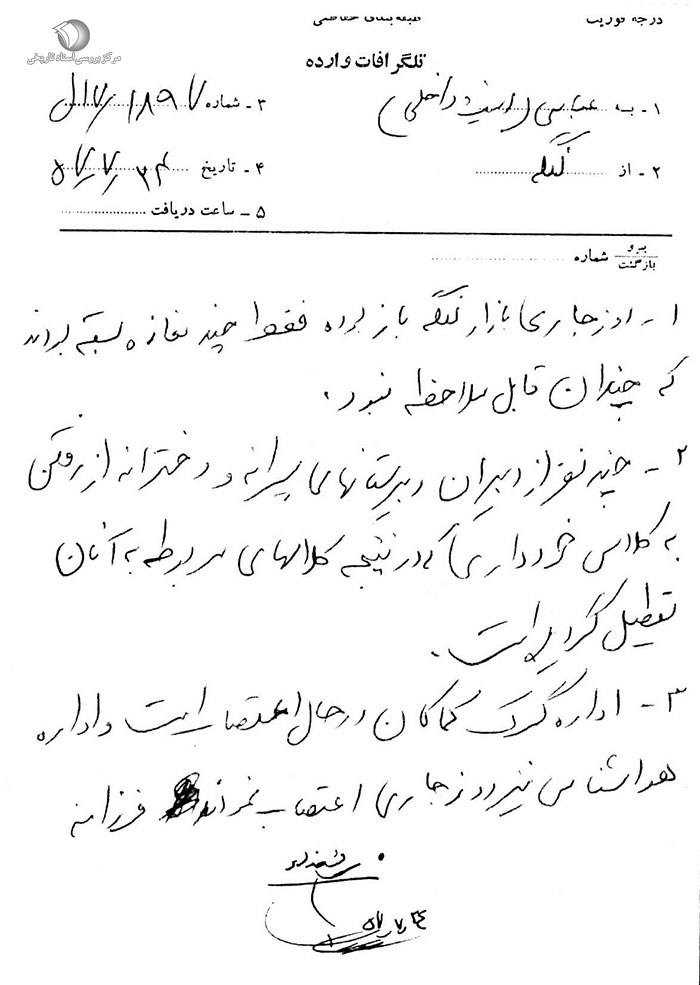 مرکز بررسی اسناد تاریخی
درجه فوریت
طبقه‌بندی حفاظتی
تلگرافات وارده
۱ـ به عباسی (امنیت داخلی)
۳ـ شماره ۱۸۹۷
۲ـ از لنگه
۴ـ تاریخ ۵۷٫۷٫۲۴
۵ ـ ساعت دریافت
پیرو
بازگشت
شماره
۱ـ روز جاری بازار لنگه باز بوده فقط چند مغازه بسته بودند
که چندان قابل ملاحظه نبود.
۲ـ چند نفر از دبیران دبیرستانهای پسرانه و دخترانه از رفتن
به کلاس خودداری که در نتیجه کلاسهای مربوطه به آنان
تعطیل گردیده است.
۳ـ اداره گمرک کماکان در حال اعتصاب است و اداره
هواشناسی نیز روز جاری اعتصاب نموده‌اند فرزانه
۵۷٫۷٫۲۴